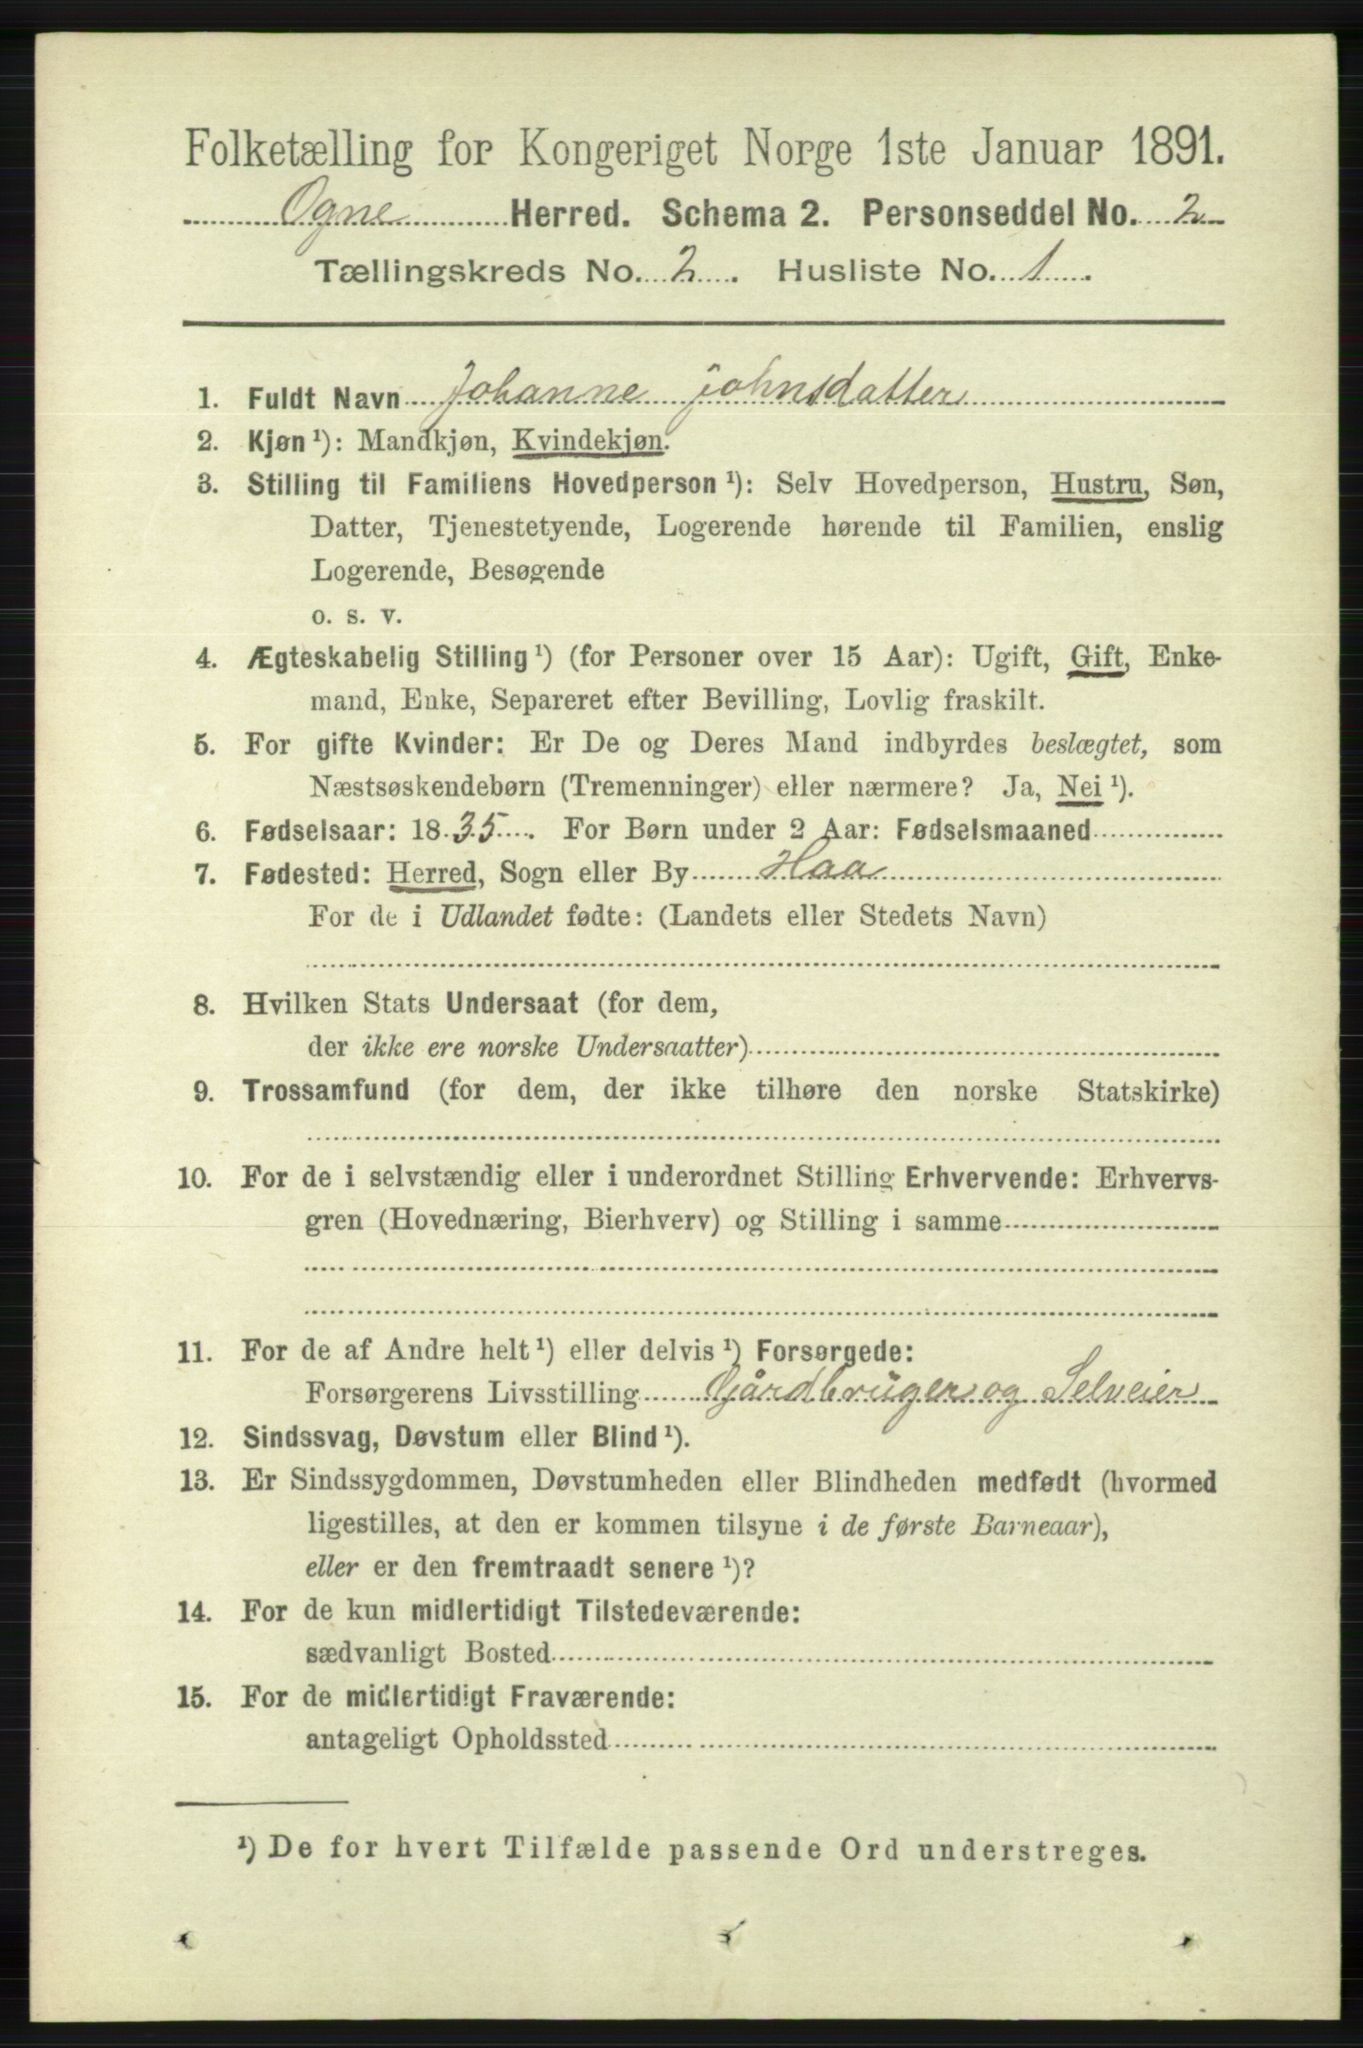 Folketælling for Kongeriget Norge 1ste Januar 1891.
Ogne Herred. Schema 2. Personseddel No. 2
Tællingskreds No. 2. Husliste No. 1.
1. Fuldt Navn Johanne Johnsdatter
2. Kjøn ¹): Mandkjøn, Kvindekjøn.
3. Stilling til Familiens Hovedperson ¹): Selv Hovedperson, Hustru, Søn,
Datter, Tjenestetyende, Logerende hørende til Familien, enslig
Logerende, Besøgende
o. s. v.
4. Ægteskabelig Stilling ¹) (for Personer over 15 Aar): Ugift, Gift, Enke-
mand, Enke, Separeret efter Bevilling, Lovlig fraskilt.
5. For gifte Kvinder: Er De og Deres Mand indbyrdes beslægtet, som
Næstsøskendebørn (Tremenninger) eller nærmere? Ja, Nei ¹).
6. Fødselsaar: 1835. For Børn under 2 Aar: Fødselsmaaned
7. Fødested: Herred, Sogn eller By Haa
For de i Udlandet fødte: (Landets eller Stedets Navn)
8. Hvilken Stats Undersaat (for dem,
der ikke ere norske Undersaatter)
9. Trossamfund (for dem, der ikke tilhøre den norske Statskirke)
10. For de i selvstændig eller i underordnet Stilling Erhvervende: Erhvervs-
gren (Hovednæring, Bierhverv) og Stilling i samme
11. For de af Andre helt ¹) eller delvis ¹) Forsørgede:
Forsørgerens Livsstilling Gårdbrüger og Selveier
12. Sindssvag, Døvstum eller Blind ¹).
13. Er Sindssygdommen, Døvstumheden eller Blindheden medfødt (hvormed
ligestilles, at den er kommen tilsyne i de første Barneaar),
eller er den fremtraadt senere ¹)?
14. For de kun midlertidigt Tilstedeværende:
sædvanligt Bosted
15. For de midlertidigt Fraværende:
antageligt Opholdssted
¹) De for hvert Tilfælde passende Ord understreges.